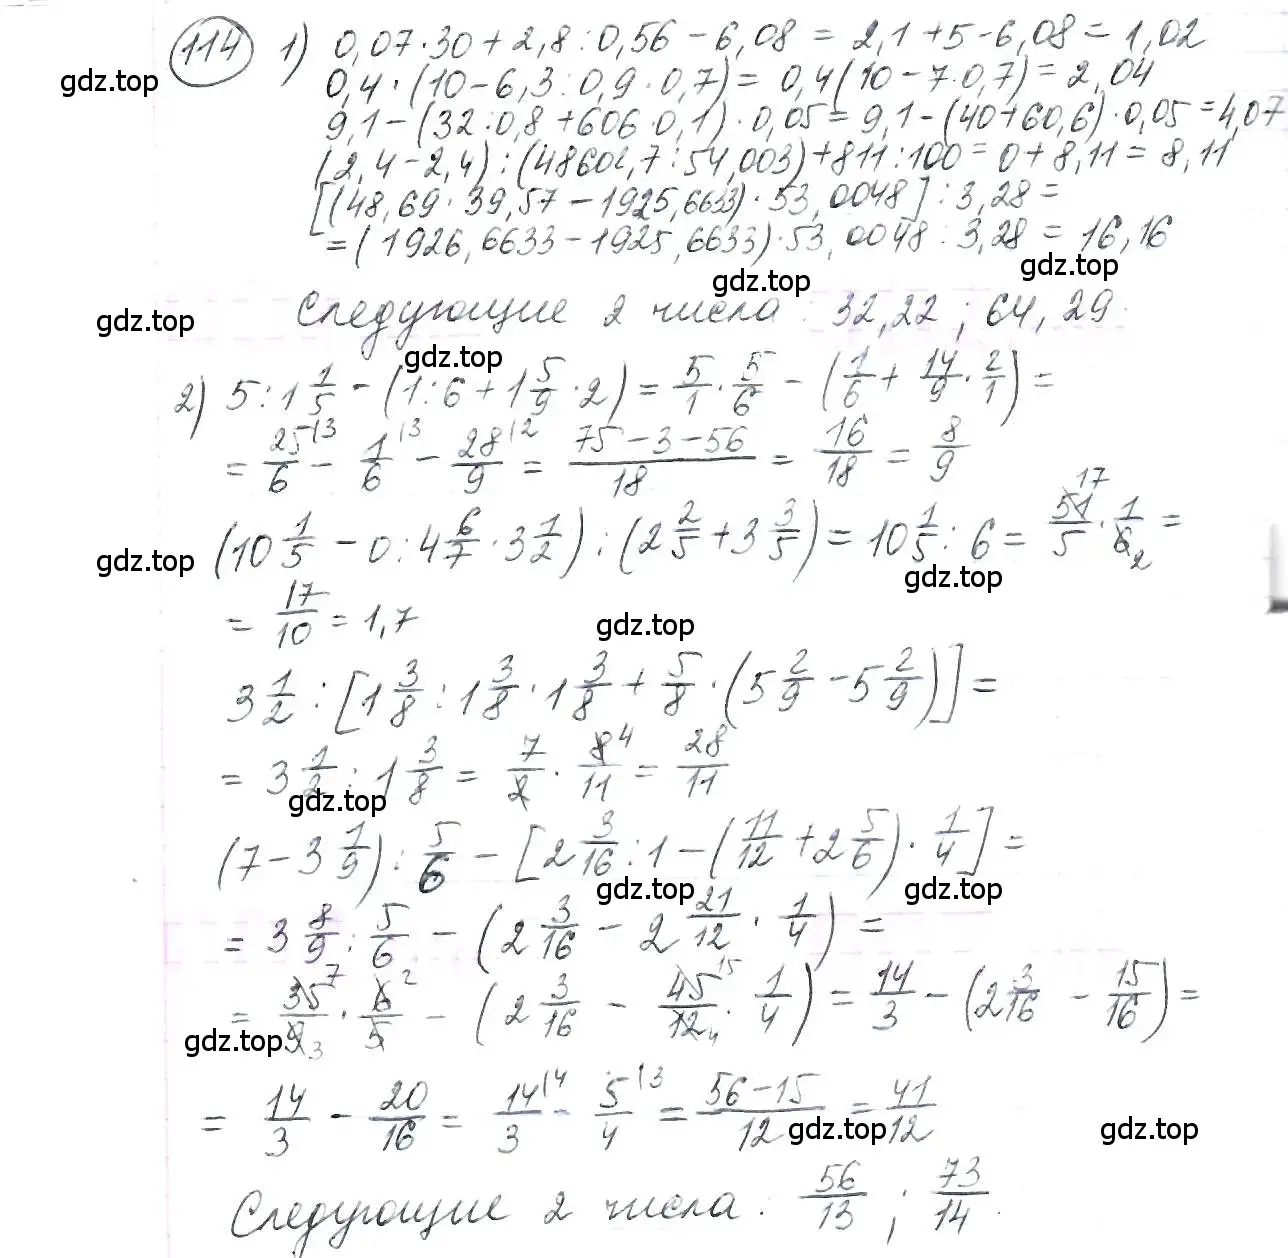 114 1) 0,07·30+2,8:0,56-6,08=2,1+5-6,08=1,02
gdz.top
0,4·(10-6,3:0,9·0,7)=0,4(10-7·0,7)=2,04
9,1-(32:0,8+606·0,1)·0,05=9,1-(40+60,6)·0,05=4,07
(2,4-2,4):(48602,7:54,003)+811:100=0+8,11=8,11
[(48,69·39,57-1925,6633)·53,0048]:3,28=
=(1926,6633-1925,6633)·53,0048:3,28=16,16
gdz.top gdz.top
gdz.top Следующие 2 числа: 32,22; 64,29.
gdz.top
2) 5:1 1/5-(1:6+1 5/9·2)=5/1·5/6-(1/6+14/9·2/1)=
=25/6|3-1/6|3-28/9|2=(75-3-56)/18=16/18=8/9
(10 1/5-0:4 6/7·3 1/2):(2 2/5+3 3/5)=10 1/5:6=51 17/5·1/6 2=
gdz.top gdz.top
=17/10=1,7
gdz.top
3 1/2:[1 3/8:1 3/8·1 3/8+5/8·(5 2/9-5 2/9)]=
=3 1/2:1 3/8=7/2·8 4/11=28/11
gdz.top
(7-3 1/9):5/6-[2 3/16:1-(11/12+2 5/6)·1/4]=
gdz.top gdz.top
=3 8/9:5/6-(2 3/16-2 21/12·1/4)=
=35 7/9 3·6 2/5-(2 3/16-45 15/12 4·1/4)=14/3-(2 3/16-15/16)=
gdz.top
=14/3-20/16=14/3|4-5/4|3=(56-15)/12=41/12
gdz.top gdz.top
Следующие 2 числа: 56/13; 73/14.